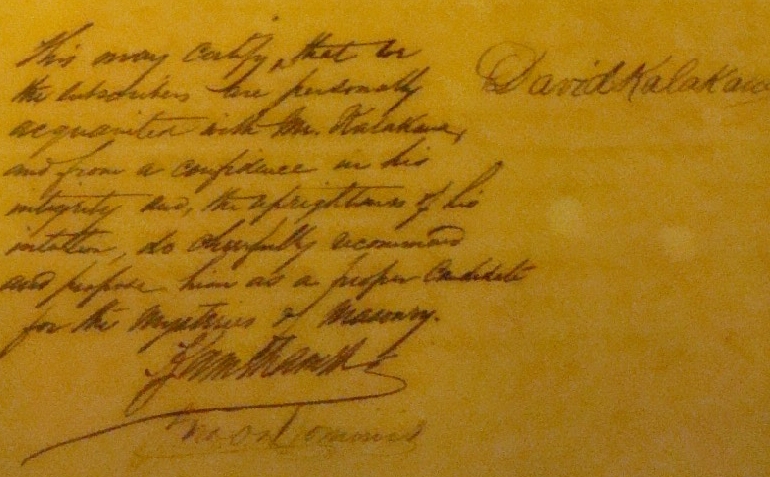 This may certify, that we
the subscribers are personally
acquainted with Mr. Kalakaua,
and from a confidence in his
integrity and, the uprightness of his
intention, do cheerfully recommend
and propose him as a proper Candidate
for the Mysteries of Masonry.
David Kalakaua
Jno O. Dominis